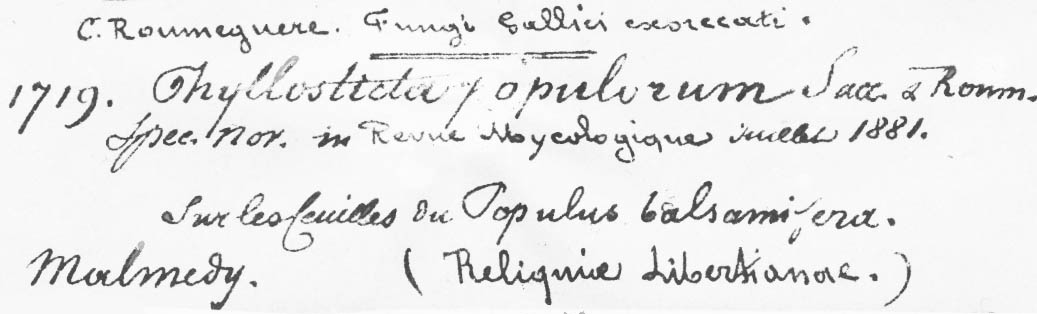 C. Roumeguere. Fungi Gallici exsiccati.
1719. Phyllosticta populorum Sacc. & Roum.
Spec. nov. in Revue Mycologique juillet 1881.
Sur les feuilles du Populus balsamifera.
Malmedy. (Reliquiæ Libertianae.)